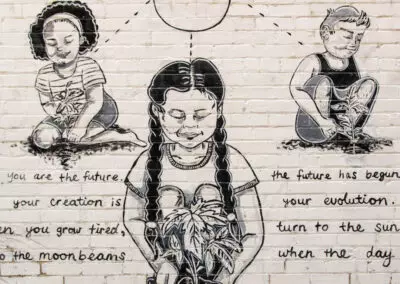 you are the future, the future has begun
your creation is your evolution.
you grow tired, turn to the sun
the moonbeams when the day